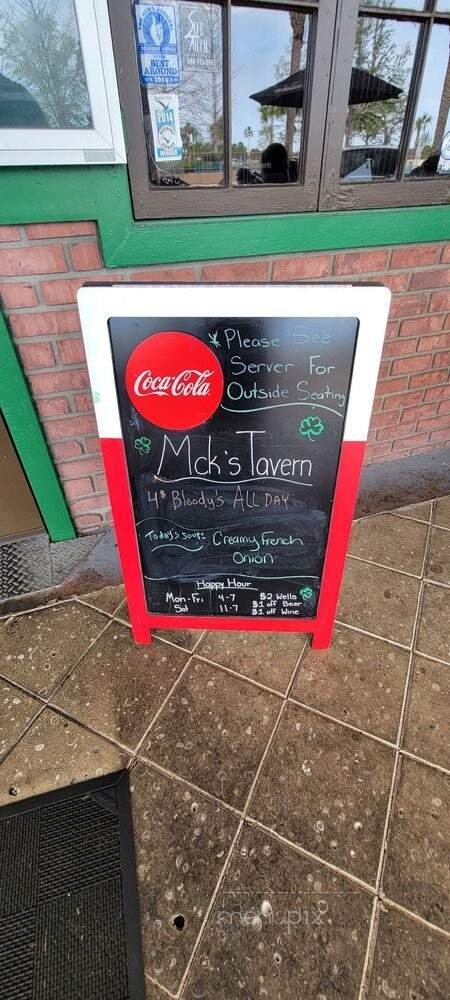 BEST
AROUND
2014
Coca-Cola
*Please See
Server For
Outside Seating
Mck's Tavern
4$ Bloody's ALL DAY
Today's Soup: Creamy French
Onion
Happy Hour
Mon-Fri 4-7 $2 Wells
Sat 11-7 $1 off Beer
$1 off Wine
menupix